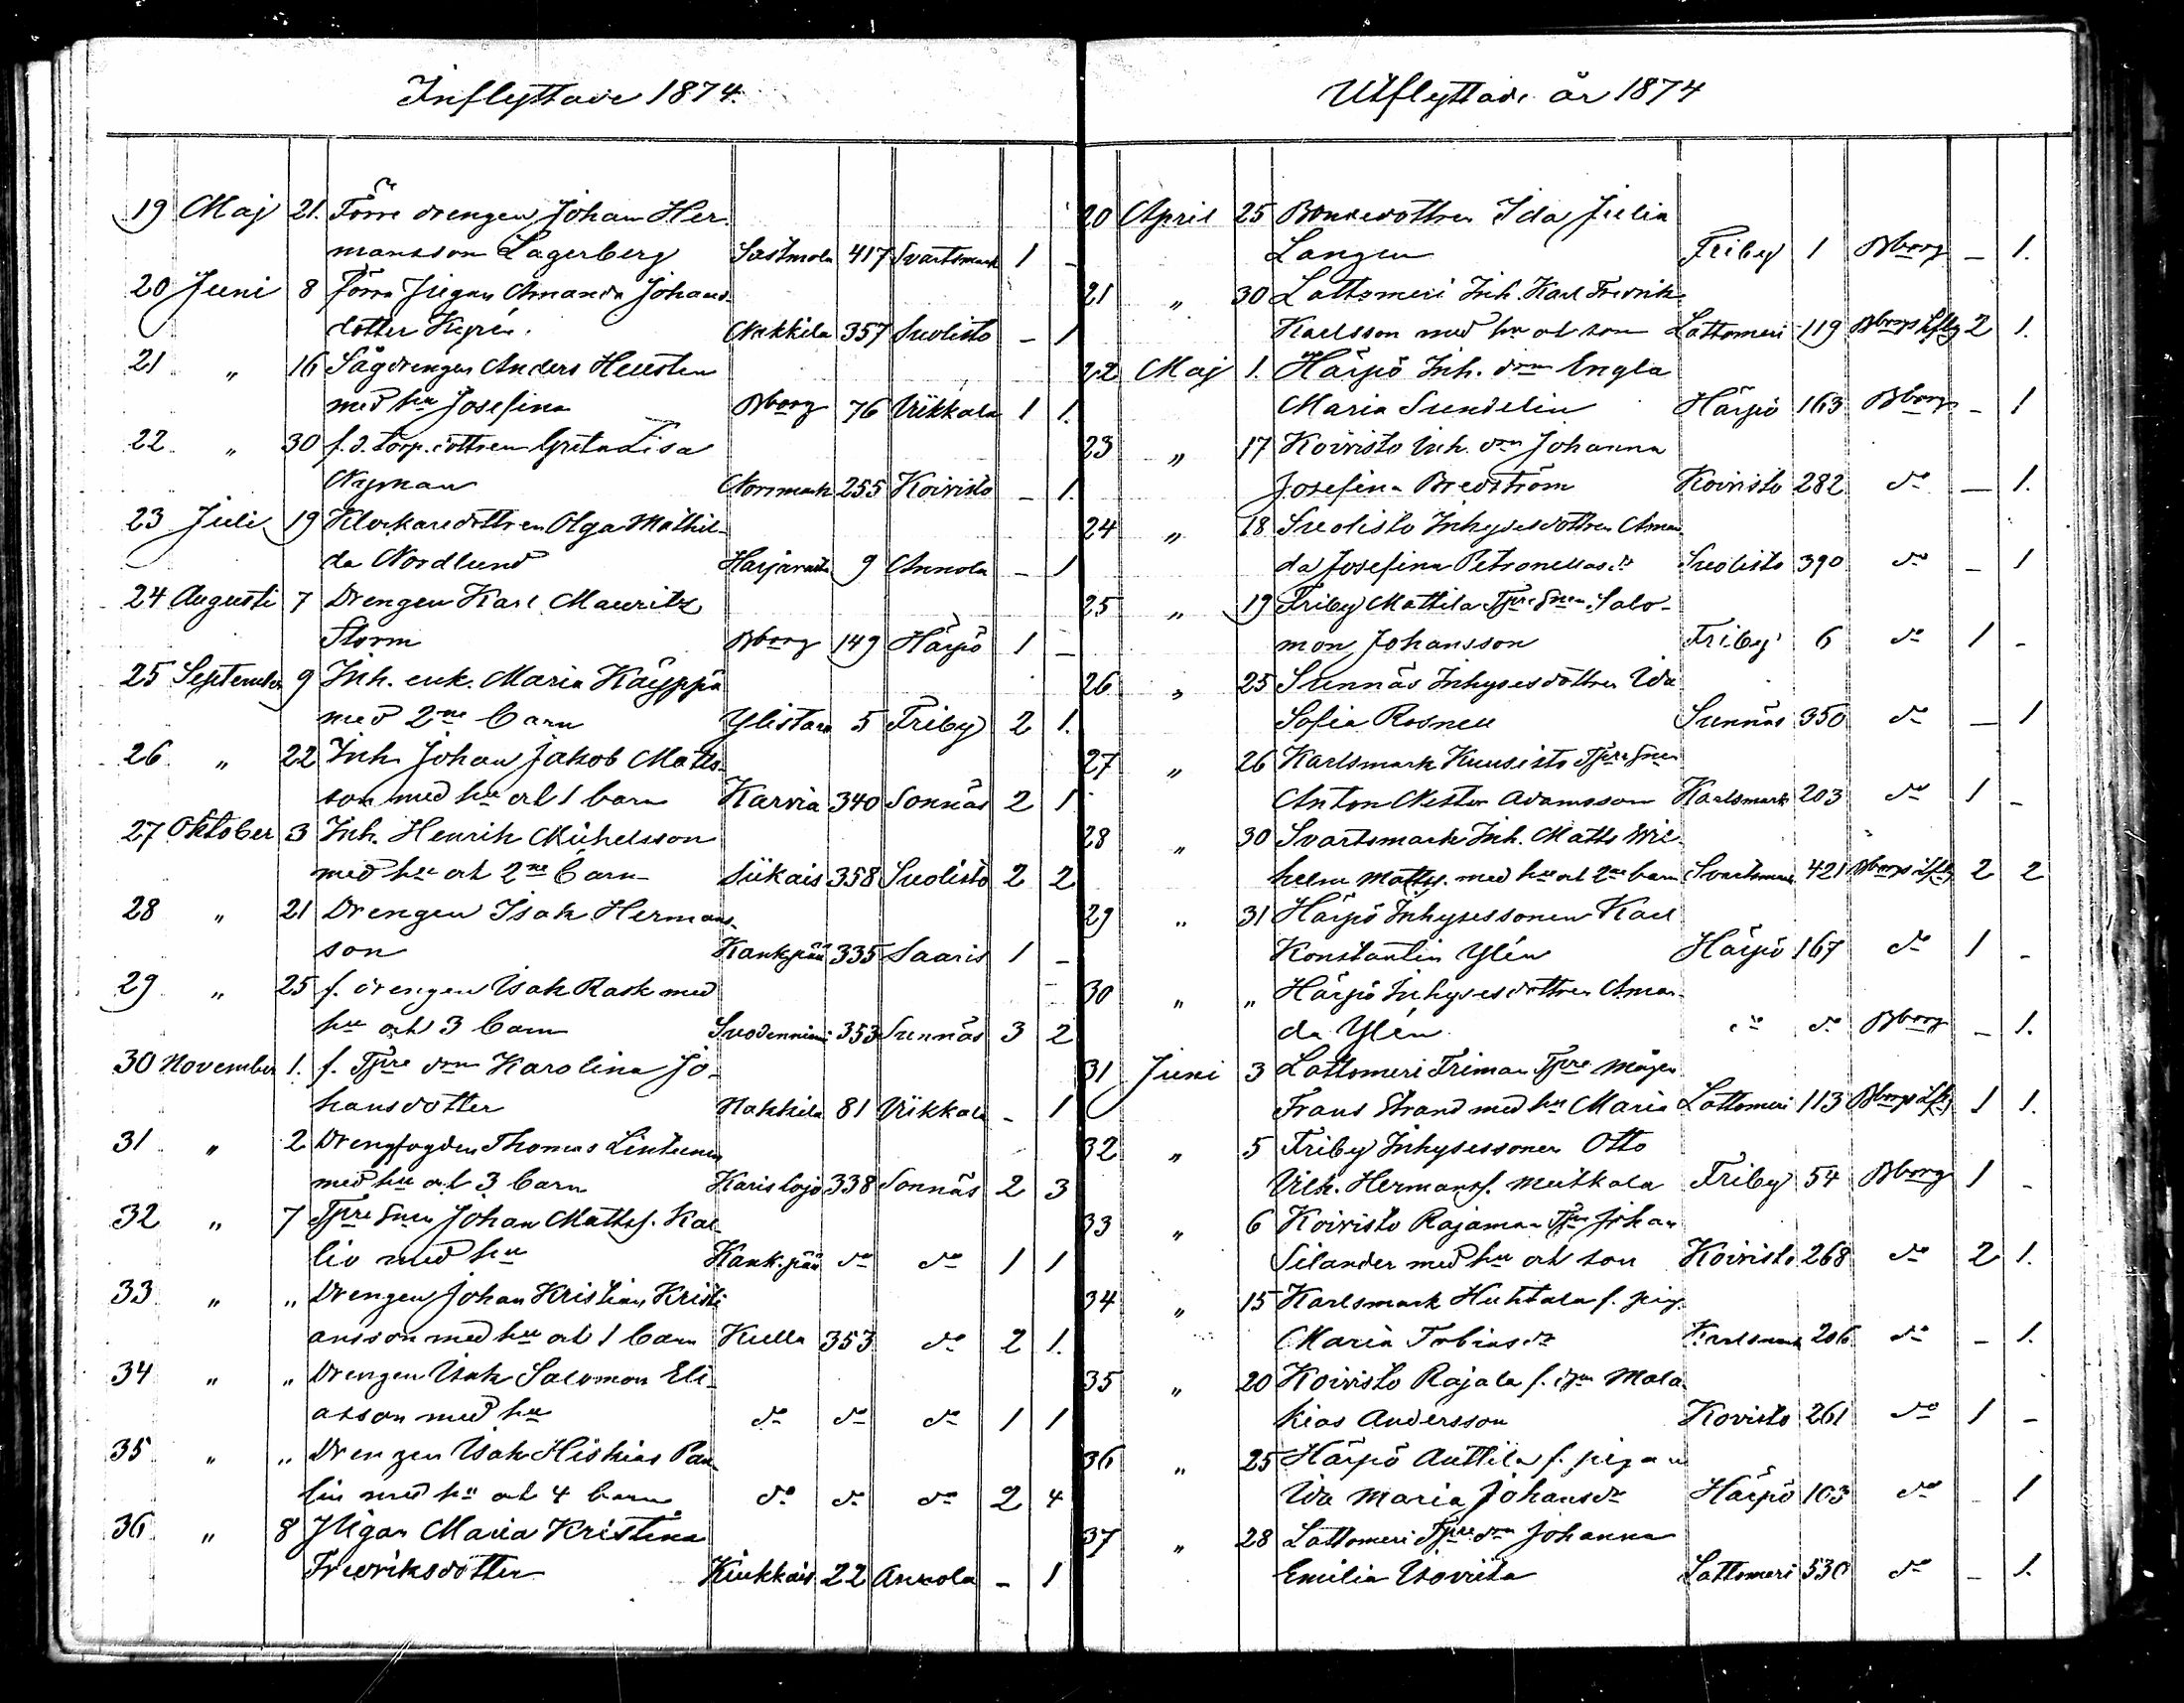 Inflyttade 1874.
19 Maj 21. Förre drengen Johan Her-
mansson Lagerberg Sastmola 417 Svartsmark 1 -
20 Juni 8 Förra Pigan Amanda Johans-
dotter Kyrén. Nakkila 357 Suolisto - 1
21 " 16 Sågdrengen Anders Hellsten
med hu Josefina Bborg 76 Viikkala 1 1.
22 " 30 f.d. torp. dottren Greta Lisa
Nyman Norrmark 255 Koivisto - 1.
23 Juli 19 Klockaredottren Olga Mathil-
da Nordlund Harjavalta 9 Annola - 1
24 Augusti 7 Drengen Karl Mauritz
Storm Bborg 149 Härpö 1 -
25 September 9 Inh. enk. Maria Käyppä
med 2ne barn Ylistaro 5 Friby 2 1.
26 " 22 Inh. Johan Jakob Matts-
son med hu och 1 barn Karvia 340 Sonnäs 2 1
27 Oktober 3 Inh. Henrik Michelsson
med hu och 2ne barn Siikais 358 Suolisto 2 2
28 " 21 Drengen Isak Hermans-
son Kankpää 335 Saaris 1 -
29 " 25 f. drengen Isak Rask med
hu och 3 barn Suodenniemi 353 Sunnäs 3 2
30 November 1. f. Tpre dm Karolina Jo-
hansdotter Nakkila 81 Viikkala - 1
31 " 2 Drengfogden Thomas Lintunen
med hu och 3 barn Karislojo 338 Sonnäs 2 3
32 " 7 Tpre Snen Johan Mattss. Kal-
lio med hu Kank.pää do do 1 1
33 " " Drengen Johan Kristian Kristi-
ansson med hu och 1 barn Kulla 353 do 2 1.
34 " " Drengen Isak Salomon Eli-
asson med hu do do do 1 1
35 " " Drengen Isak Hiskias Pau-
lin med hu och 4 barn do do do 2 4
36 " 8 Pigan Maria Kristina
Fredriksdotter Kiukkais 22 Annola - 1
Utflyttade år 1874
20 April 25 Bondedottren Ida Julia
Langen Friby 1 Bborg - 1.
21 " 30 Lattomeri Inh. Karl Fredrik
Karlsson med hu och son Lattomeri 119 Bborgs Lfkg 2 1.
22 Maj 1. Härpö Inh. dm Engla
Maria Sundelin Härpö 163 Bborg - 1
23 " 17 Koivisto Inh. dm Johanna
Josefina Bredström Koivisto 282 do - 1.
24 " 18 Suolisto Inhysesdottren Aman-
da Josefina Petronellas dr Suolisto 390 do - 1
25 " 19 Friby Mattila Tpre Snen Salo-
mon Johansson Friby 6 do 1 -
26 " 25 Sunnäs Inhysesdottren Ida
Sofia Rosnell Sunnäs 350 do - 1
27 " 26 Karlsmark Kuusisto Tpre Snen
Anton Nestor Adamsson Karlsmark 203 do 1 -
28 " 30 Svartsmark Inh. Matts Wil-
helm Mattss. med hu och 2ne barn Svartsmark 421 Bborgs Lfkg 2 2
29 " 31 Härpö Inhysessonen Karl
Konstantin Ylén Härpö 167 do 1 -
30 " " Härpö Inhysesdottren Aman-
da Ylén do do Bborg - 1.
31 Juni 3 Lattomeri Friman Tpre mågen
Frans Strand med hu Maria Lattomeri 113 Bborgs Lfkg 1 1.
32 " 5 Friby Inhysessonen Otto
Vilh. Hermanss. Meikkala Friby 54 Bborg 1 -
33 " 6 Koivisto Rajaman Tpn Johan
Selander med hu och son Koivisto 268 do 2 1.
34 " 15 Karlsmark Huhtala f. pig.
Maria Tobias dr Karlsmark 206 do - 1.
35 " 20 Koivisto Rajala f. dgn Mala-
kias Andersson Kovisto 261 do 1 -
36 " 25 Härpö Anttila f. pigan
Ida Maria Johans dr Härpö 103 do - 1
37 " 28 Lattomeri Tpre dm Johanna
Emilia Isovista Lattomeri 530 do - 1.